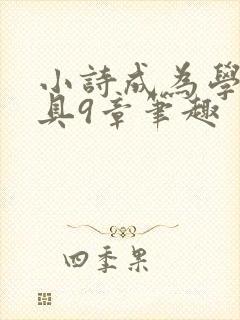 小詩成為學
具9章筆趣
四季果